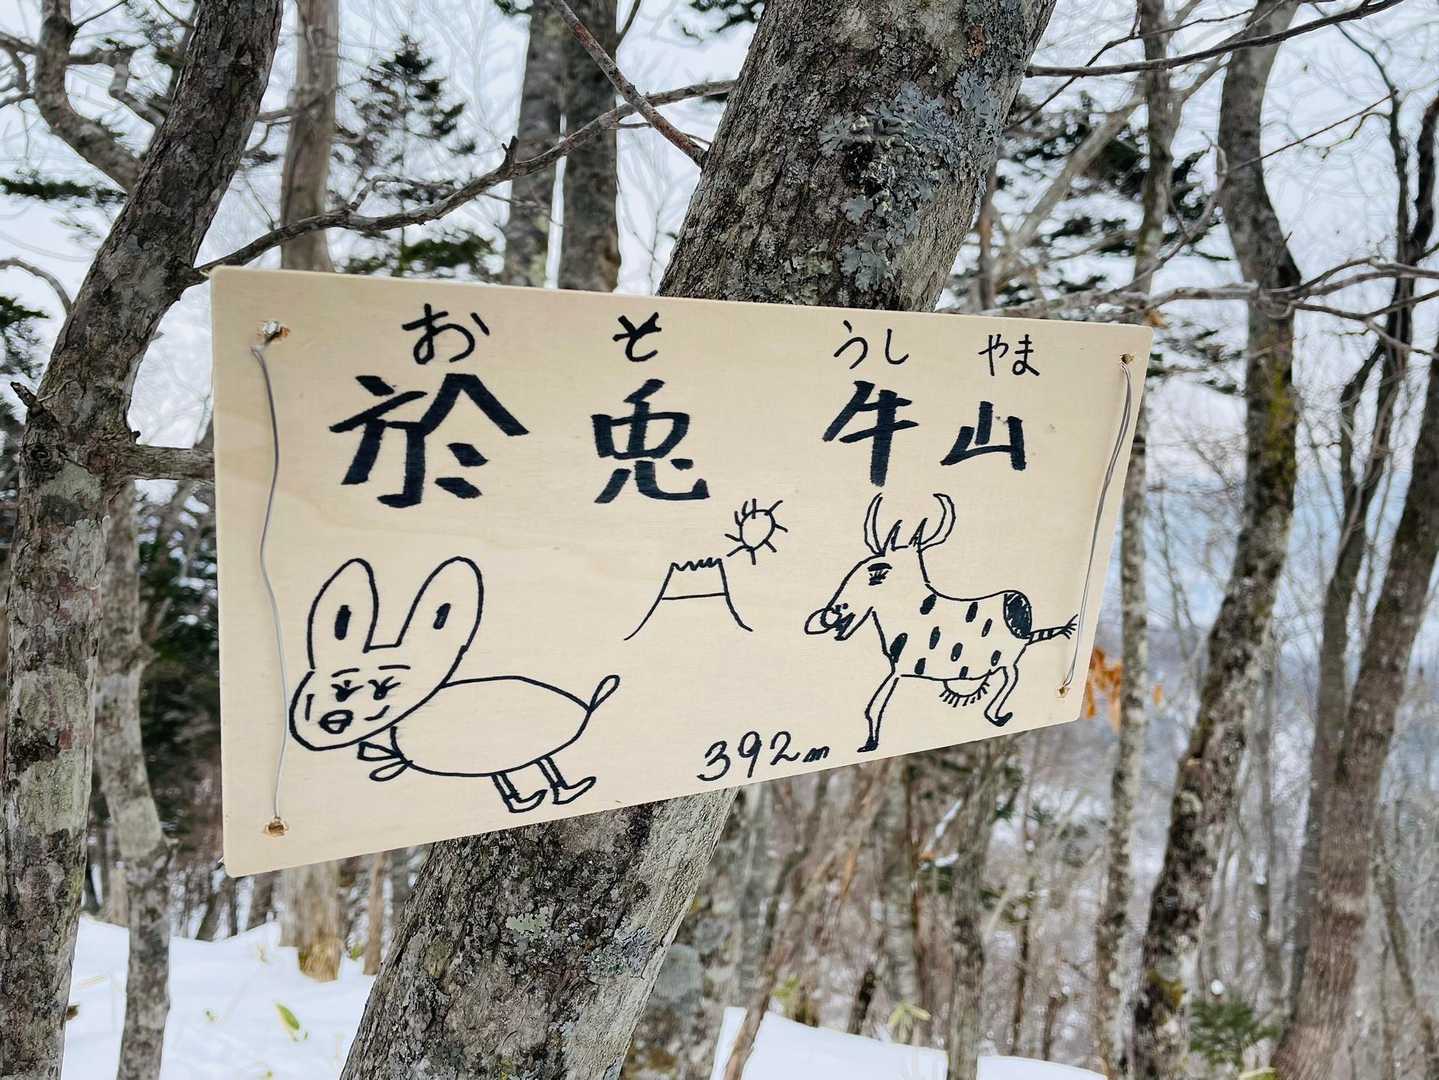 おそ うしやま
於兎牛山
392m